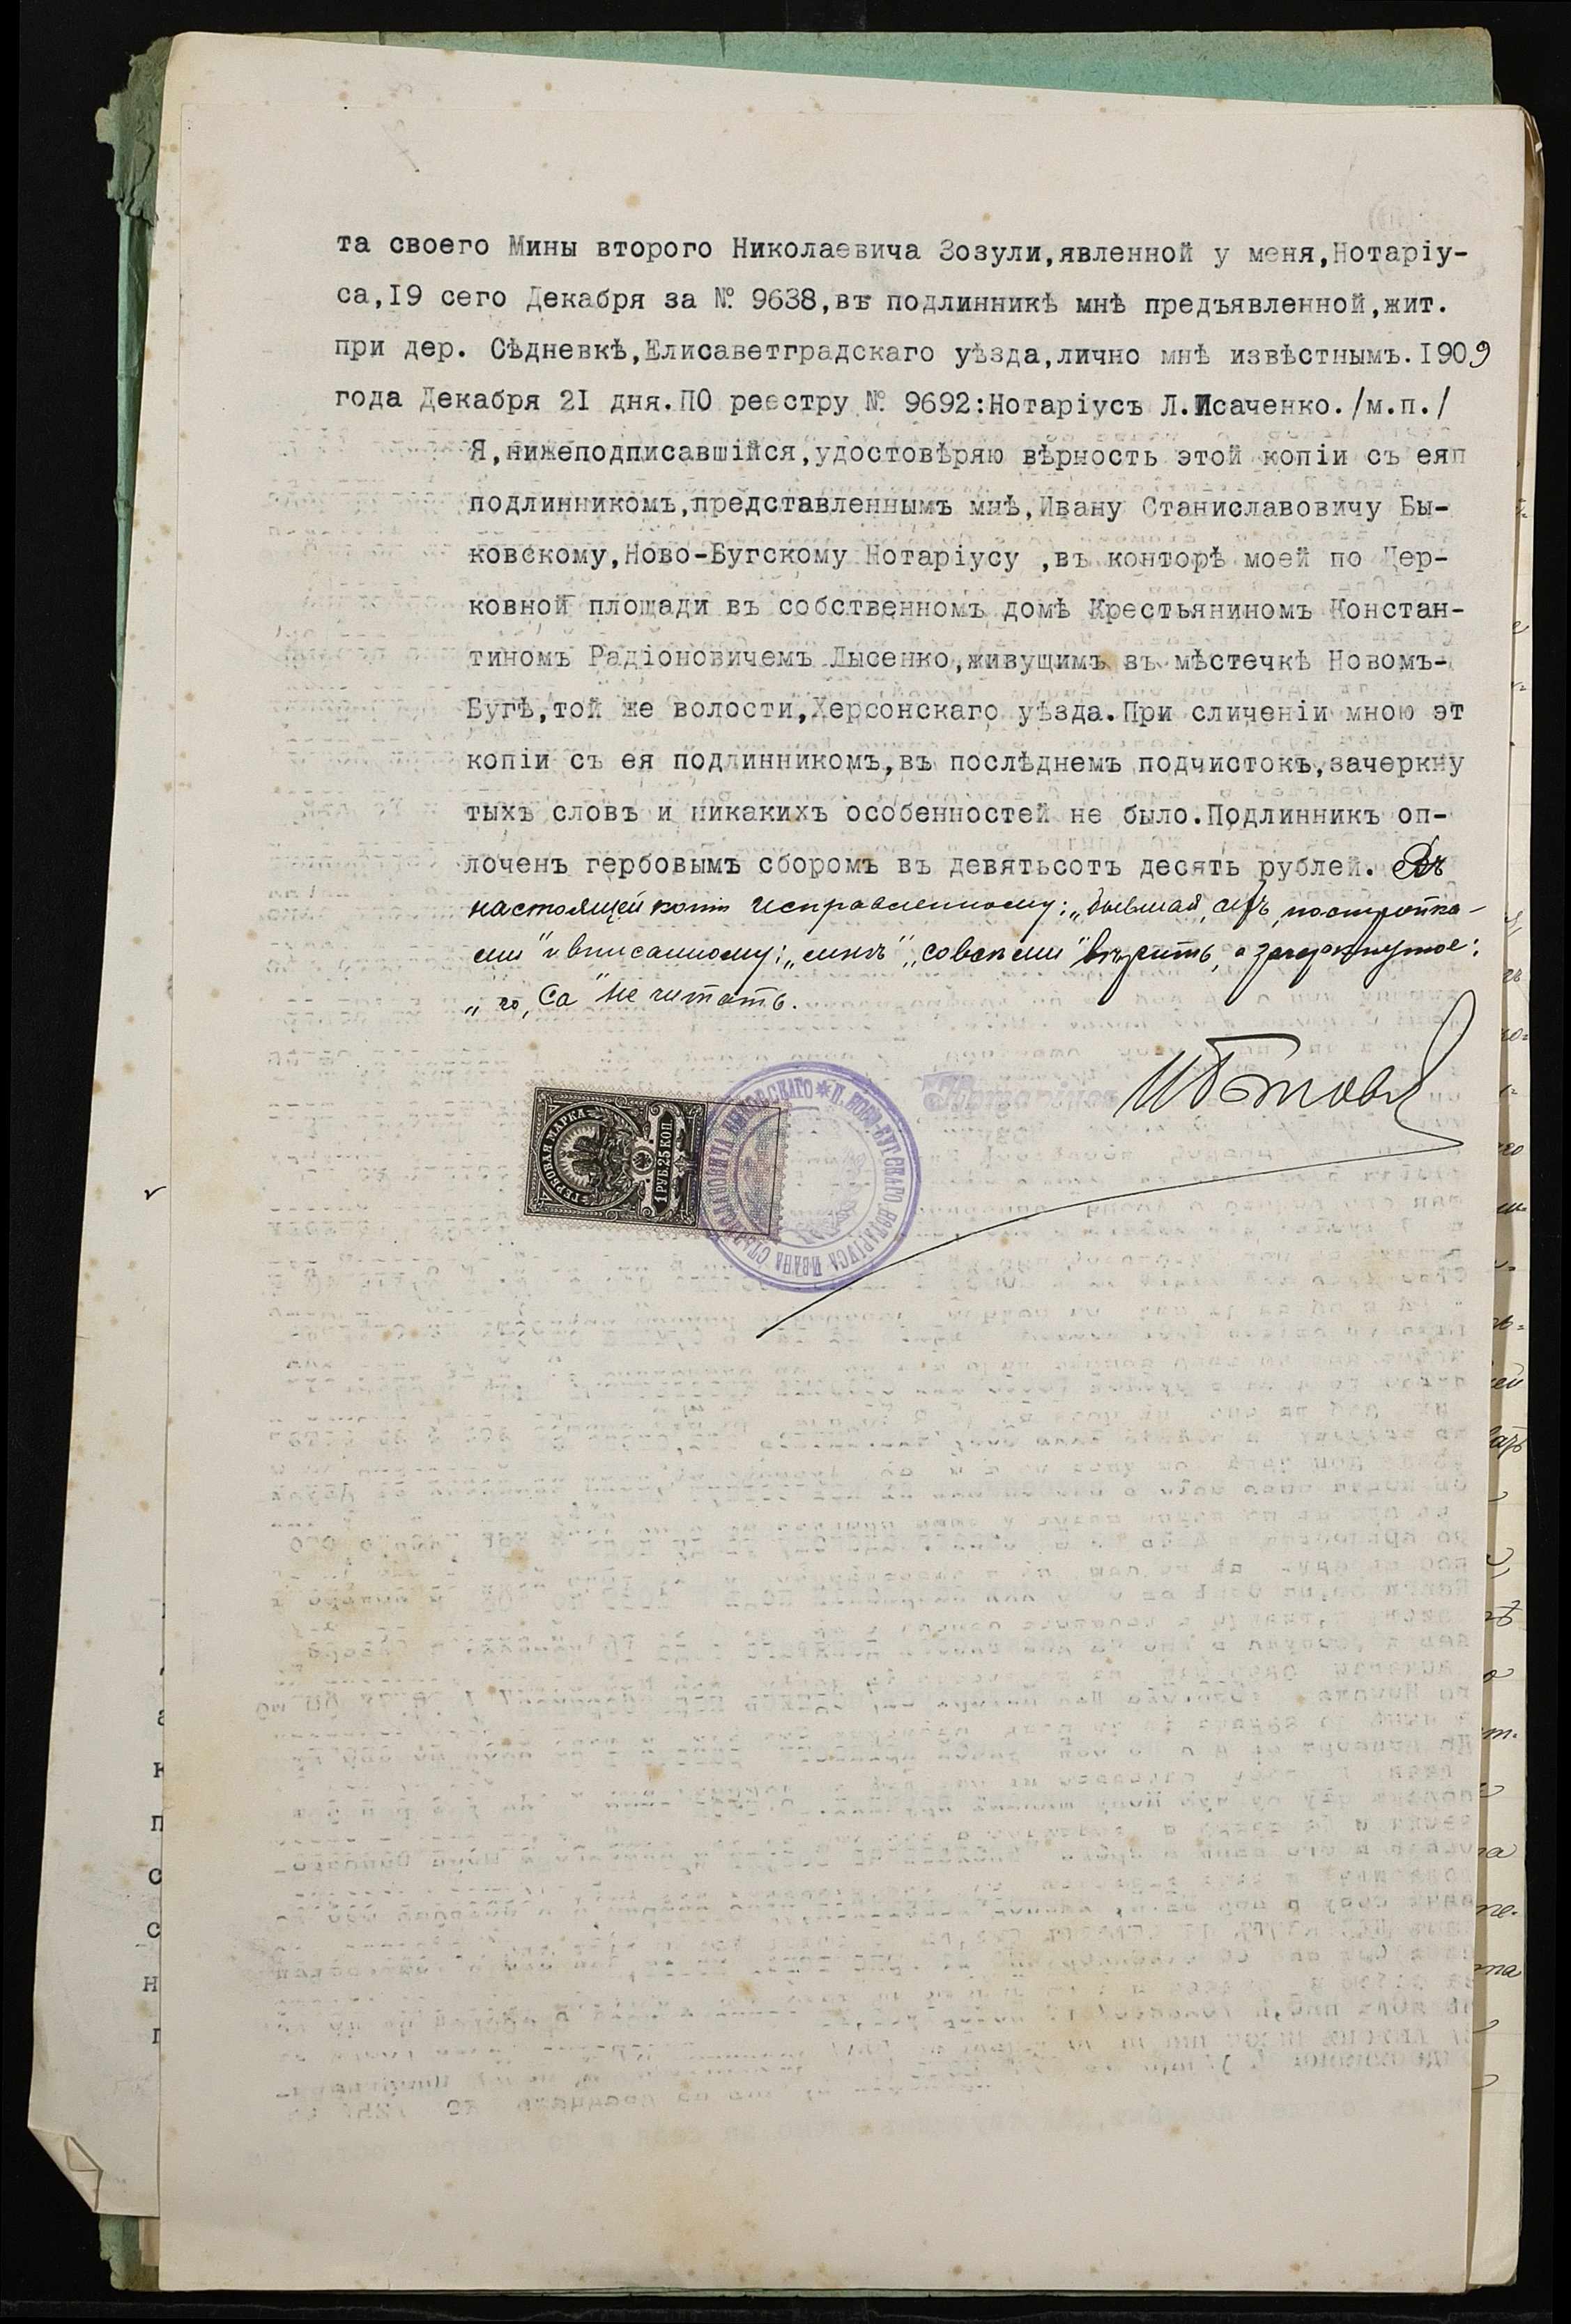 та своего Мины второго Николаевича Зозули,явленной у меня,Нотаріу-
са,I9 сего Декабря за № 9638,въ подлинникѣ мнѣ предъявленной,жит.
при дер. Сѣдневкѣ,Елисаветградскаго уѣзда,лично мнѣ извѣстнымъ.I909
года Декабря 2I дня.ПО реестру № 9692:Нотаріусъ Л.Исаченко./м.п./
Я,нижеподписавшійся,удостовѣряю вѣрность этой копіи съ еяп
подлинникомъ,представленнымъ мнѣ,Ивану Станиславовичу Бы-
ковскому,Ново-Бугскому Нотаріусу ,въ конторѣ моей по Цер-
ковной площади въ собственномъ домѣ Крестьяниномъ Констан-
тиномъ Радіоновичемъ Лысенко,живущимъ въ мѣстечкѣ Новомъ-
Бугѣ,той же волости,Херсонскаго уѣзда.При сличеніи мною эт
копіи съ ея подлинникомъ,въ послѣднемъ подчистокъ,зачеркну
тыхъ словъ и никакихъ особенностей не было.Подлинникъ оп-
лоченъ гербовымъ сборомъ въ девятьсотъ десять рублей. Въ
настоящей копіи исправленному: „бывшая, постройка-
ми" и вписанному: „совсѣми" вѣрить, а зачеркнутое:
„го, са" не читать.
Нотаріусъ
ГЕРБОВАЯ МАРКА
1 РУБ. 25 КОП.
П. НОВО-БУГСКАГО НОТАРІУСА ИВАНА СТАНИСЛАВОВИЧА БЫКОВСКАГО